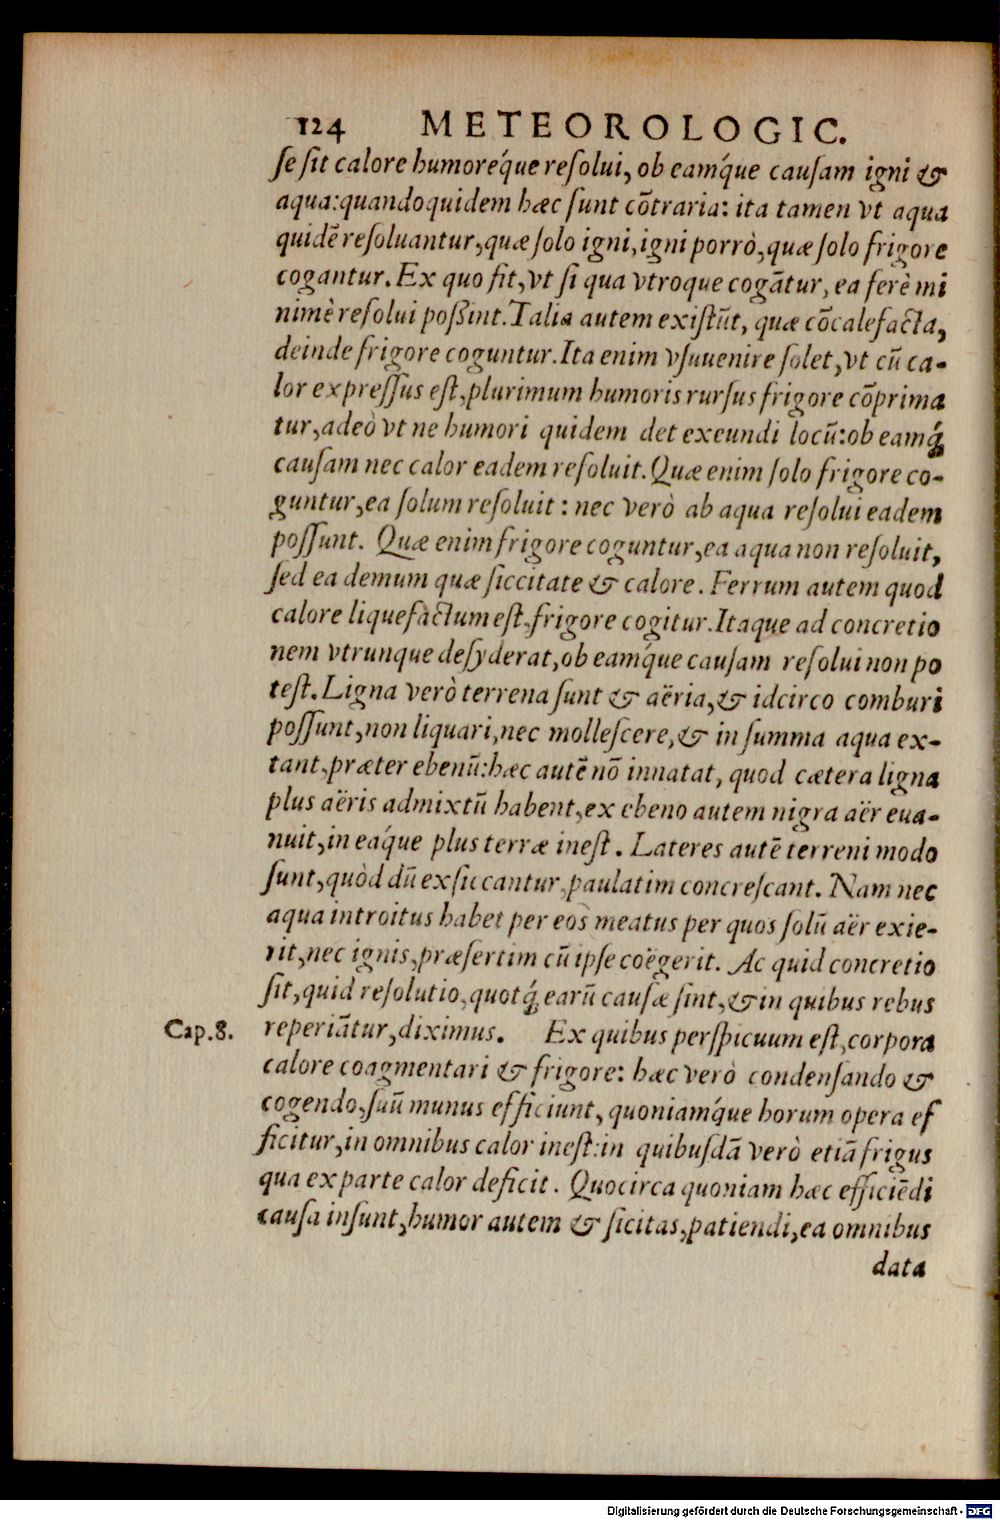 124 METEOROLOGIC.
ſe ſit calore humoreq́ue reſolui, ob eamq́ue cauſam igni &
aqua: quandoquidem hæc ſunt cõtraria: ita tamen vt aqua
quidẽ reſoluantur, quæ ſolo igni, igni porrò, quæ ſolo frigore
cogantur. Ex quo fit, vt ſi qua vtroque cogãtur, ea ferè mi
nimè reſolui poßint. Talia autem exiſtũt, quæ cõcalefacta,
deinde frigore coguntur. Ita enim vſuuenire ſolet, vt cũ ca-
lor expreſſus eſt, plurimum humoris rurſus frigore cõprima
tur, adeò vt ne humori quidem det exeundi locũ: ob eamq́;
cauſam nec calor eadem reſoluit. Quæ enim ſolo frigore co-
guntur, ea ſolum reſoluit: nec verò ab aqua reſolui eadem
poſſunt. Quæ enim frigore coguntur, ea aqua non reſoluit,
ſed ea demum quæ ſiccitate & calore. Ferrum autem quod
calore liquefactum eſt, frigore cogitur. Itaque ad concretio
nem vtrunque deſyderat, ob eamq́ue cauſam reſolui non po
teſt. Ligna verò terrena ſunt & aëria, & idcirco comburi
poſſunt, non liquari, nec molleſcere, & in ſumma aqua ex-
tant, præter ebenũ: hæc autẽ nõ innatat, quod cætera ligna
plus aëris admixtũ habent, ex ebeno autem nigra aër eua-
nuit, in eaq́ue plus terræ ineſt. Lateres autẽ terreni modo
ſunt, quòd dũ exſiccantur, paulatim concreſcant. Nam nec
aqua introitus habet per eos meatus per quos ſolũ aër exie-
rit, nec ignis, præſertim cũ ipſe coëgerit. Ac quid concretio
ſit, quid reſolutio, quotq́; earũ cauſæ ſint, & in quibus rebus
Cap.8. reperiãtur, diximus. Ex quibus perſpicuum eſt, corpora
calore coagmentari & frigore: hæc verò condenſando &
cogendo, ſuũ munus efficiunt, quoniamq́ue horum opera ef
ficitur, in omnibus calor ineſt: in quibuſdã verò etiã frigus
qua ex parte calor deficit. Quocirca quoniam hæc efficiẽdi
cauſa inſunt, humor autem & ſicitas, patiendi, ea omnibus
data
Digitalisierung gefördert durch die Deutsche Forschungsgemeinschaft - DFG